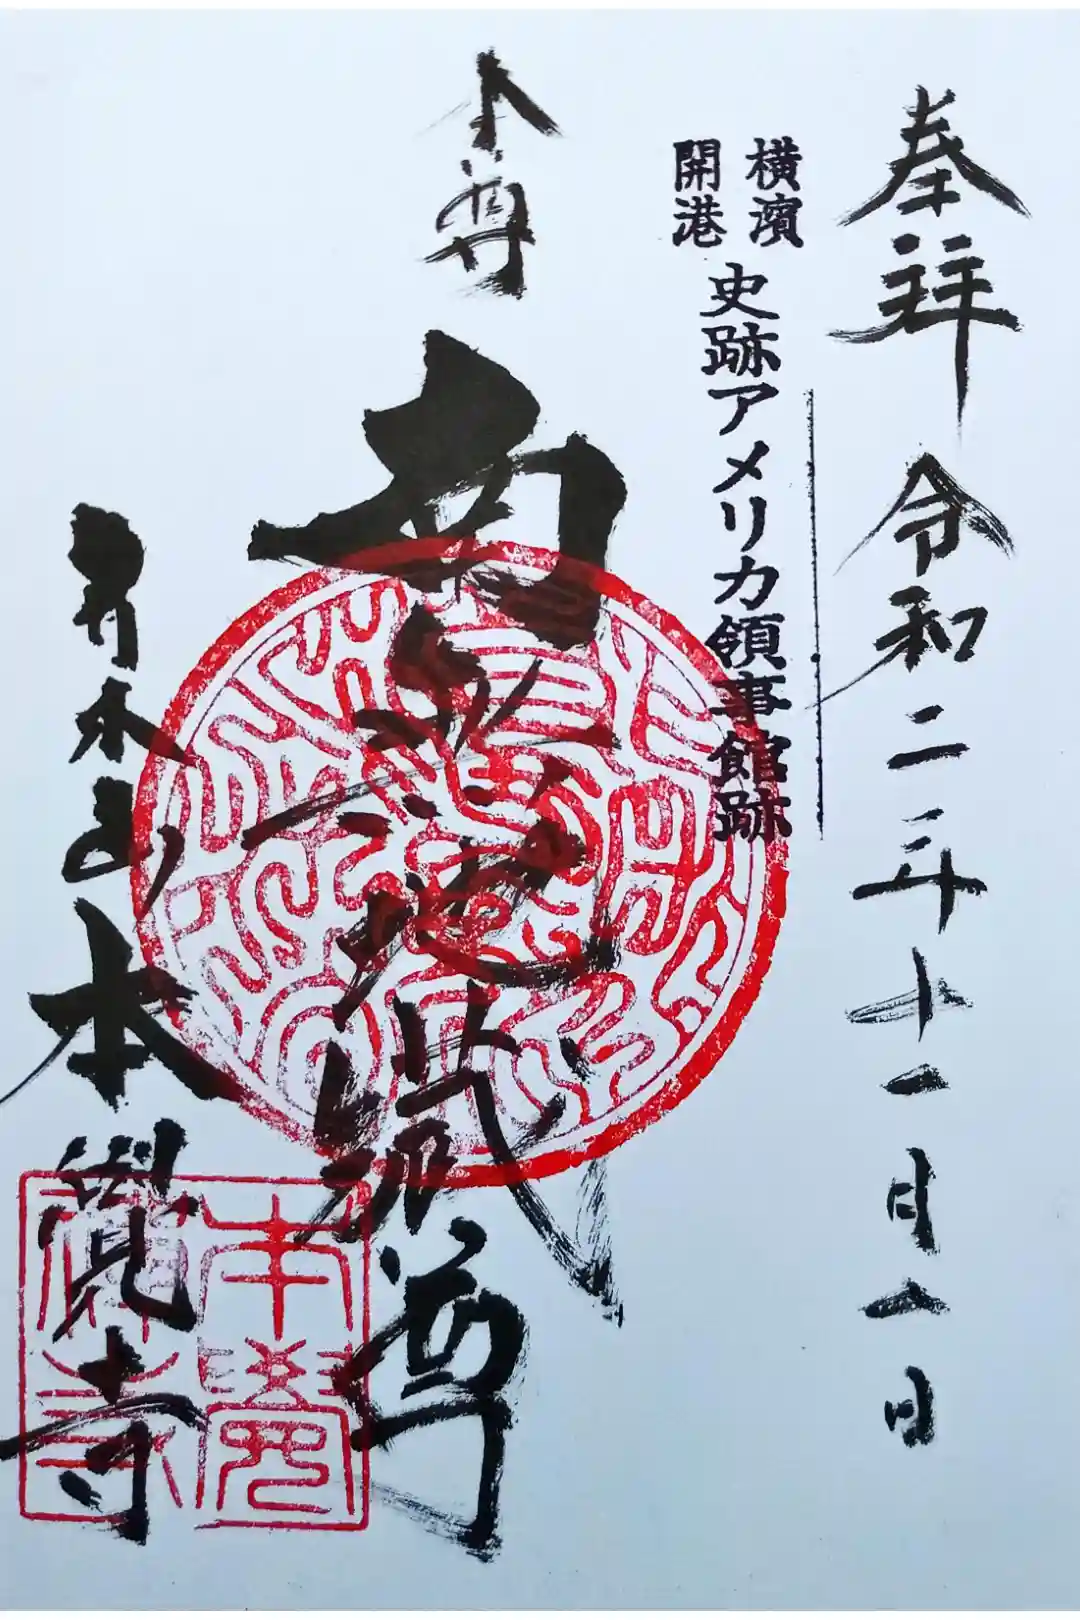 奉拝 令和二年十一月 日
横濱
開港
史跡アメリカ領事館跡
本尊 南無地蔵尊
青木山本覺寺
本覺
禪寺